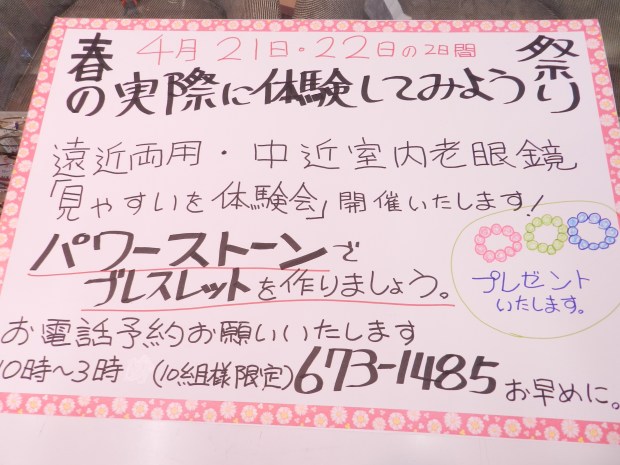 4月21日・22日の2日間
春の実際に体験してみよう祭り
遠近両用・中近室内老眼鏡
「見やすいを体験会」開催いたします!
パワーストーンで
ブレスレットを作りましょう。
プレゼント
いたします。
お電話予約お願いいたします
10時〜3時 (10組様限定) 673-1485 お早めに。